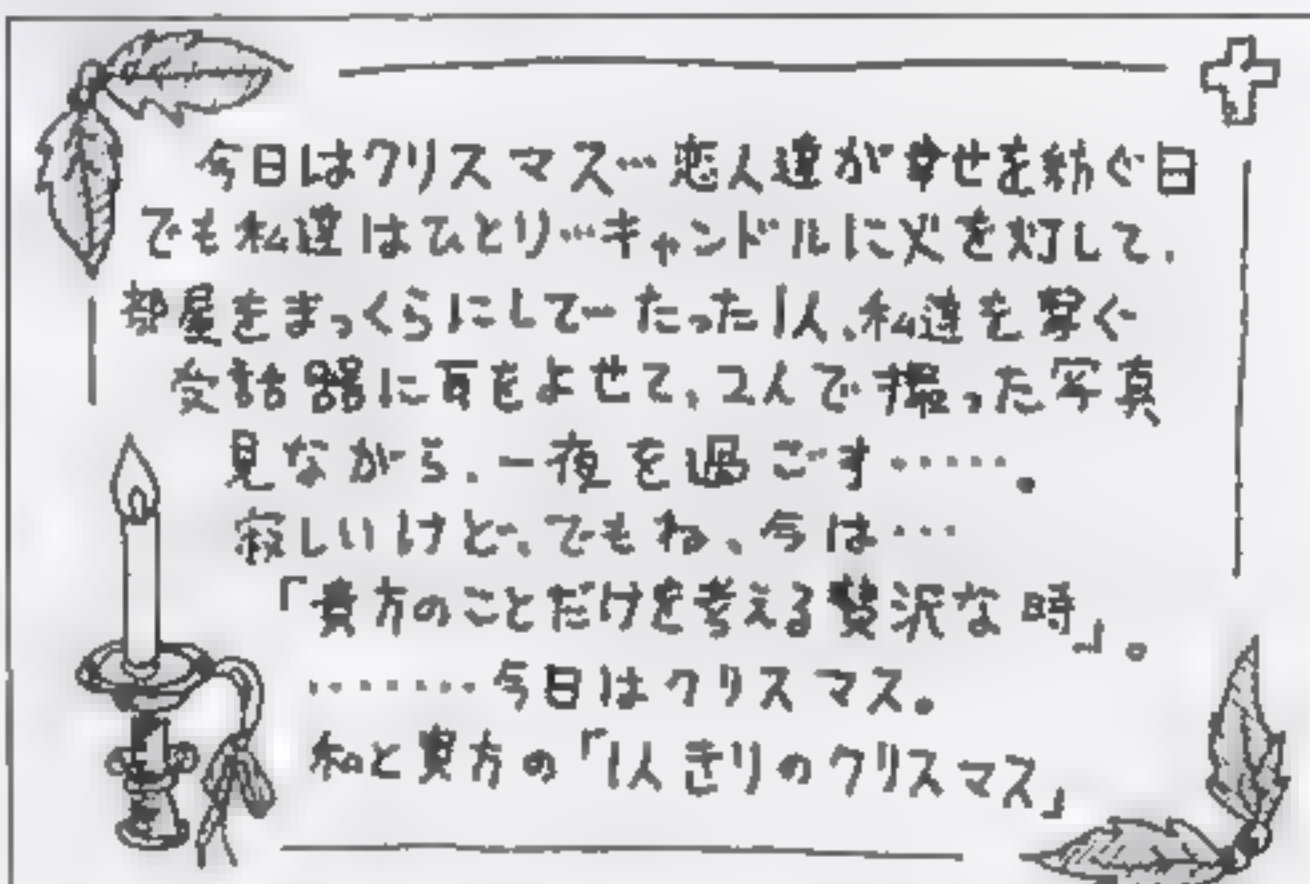 今日はクリスマス…恋人達が幸せを紡ぐ日
でも私達はひとり…キャンドルに火を灯して、
部屋をまっくらにして…たった1人、私達を繋ぐ
受話器に耳をよせて、2人で撮った写真
見ながら、一夜を過ごす……。
寂しいけど、でもね、今は…
「貴方のことだけを考える贅沢な時」。
………今日はクリスマス。
私と貴方の「1人きりのクリスマス」